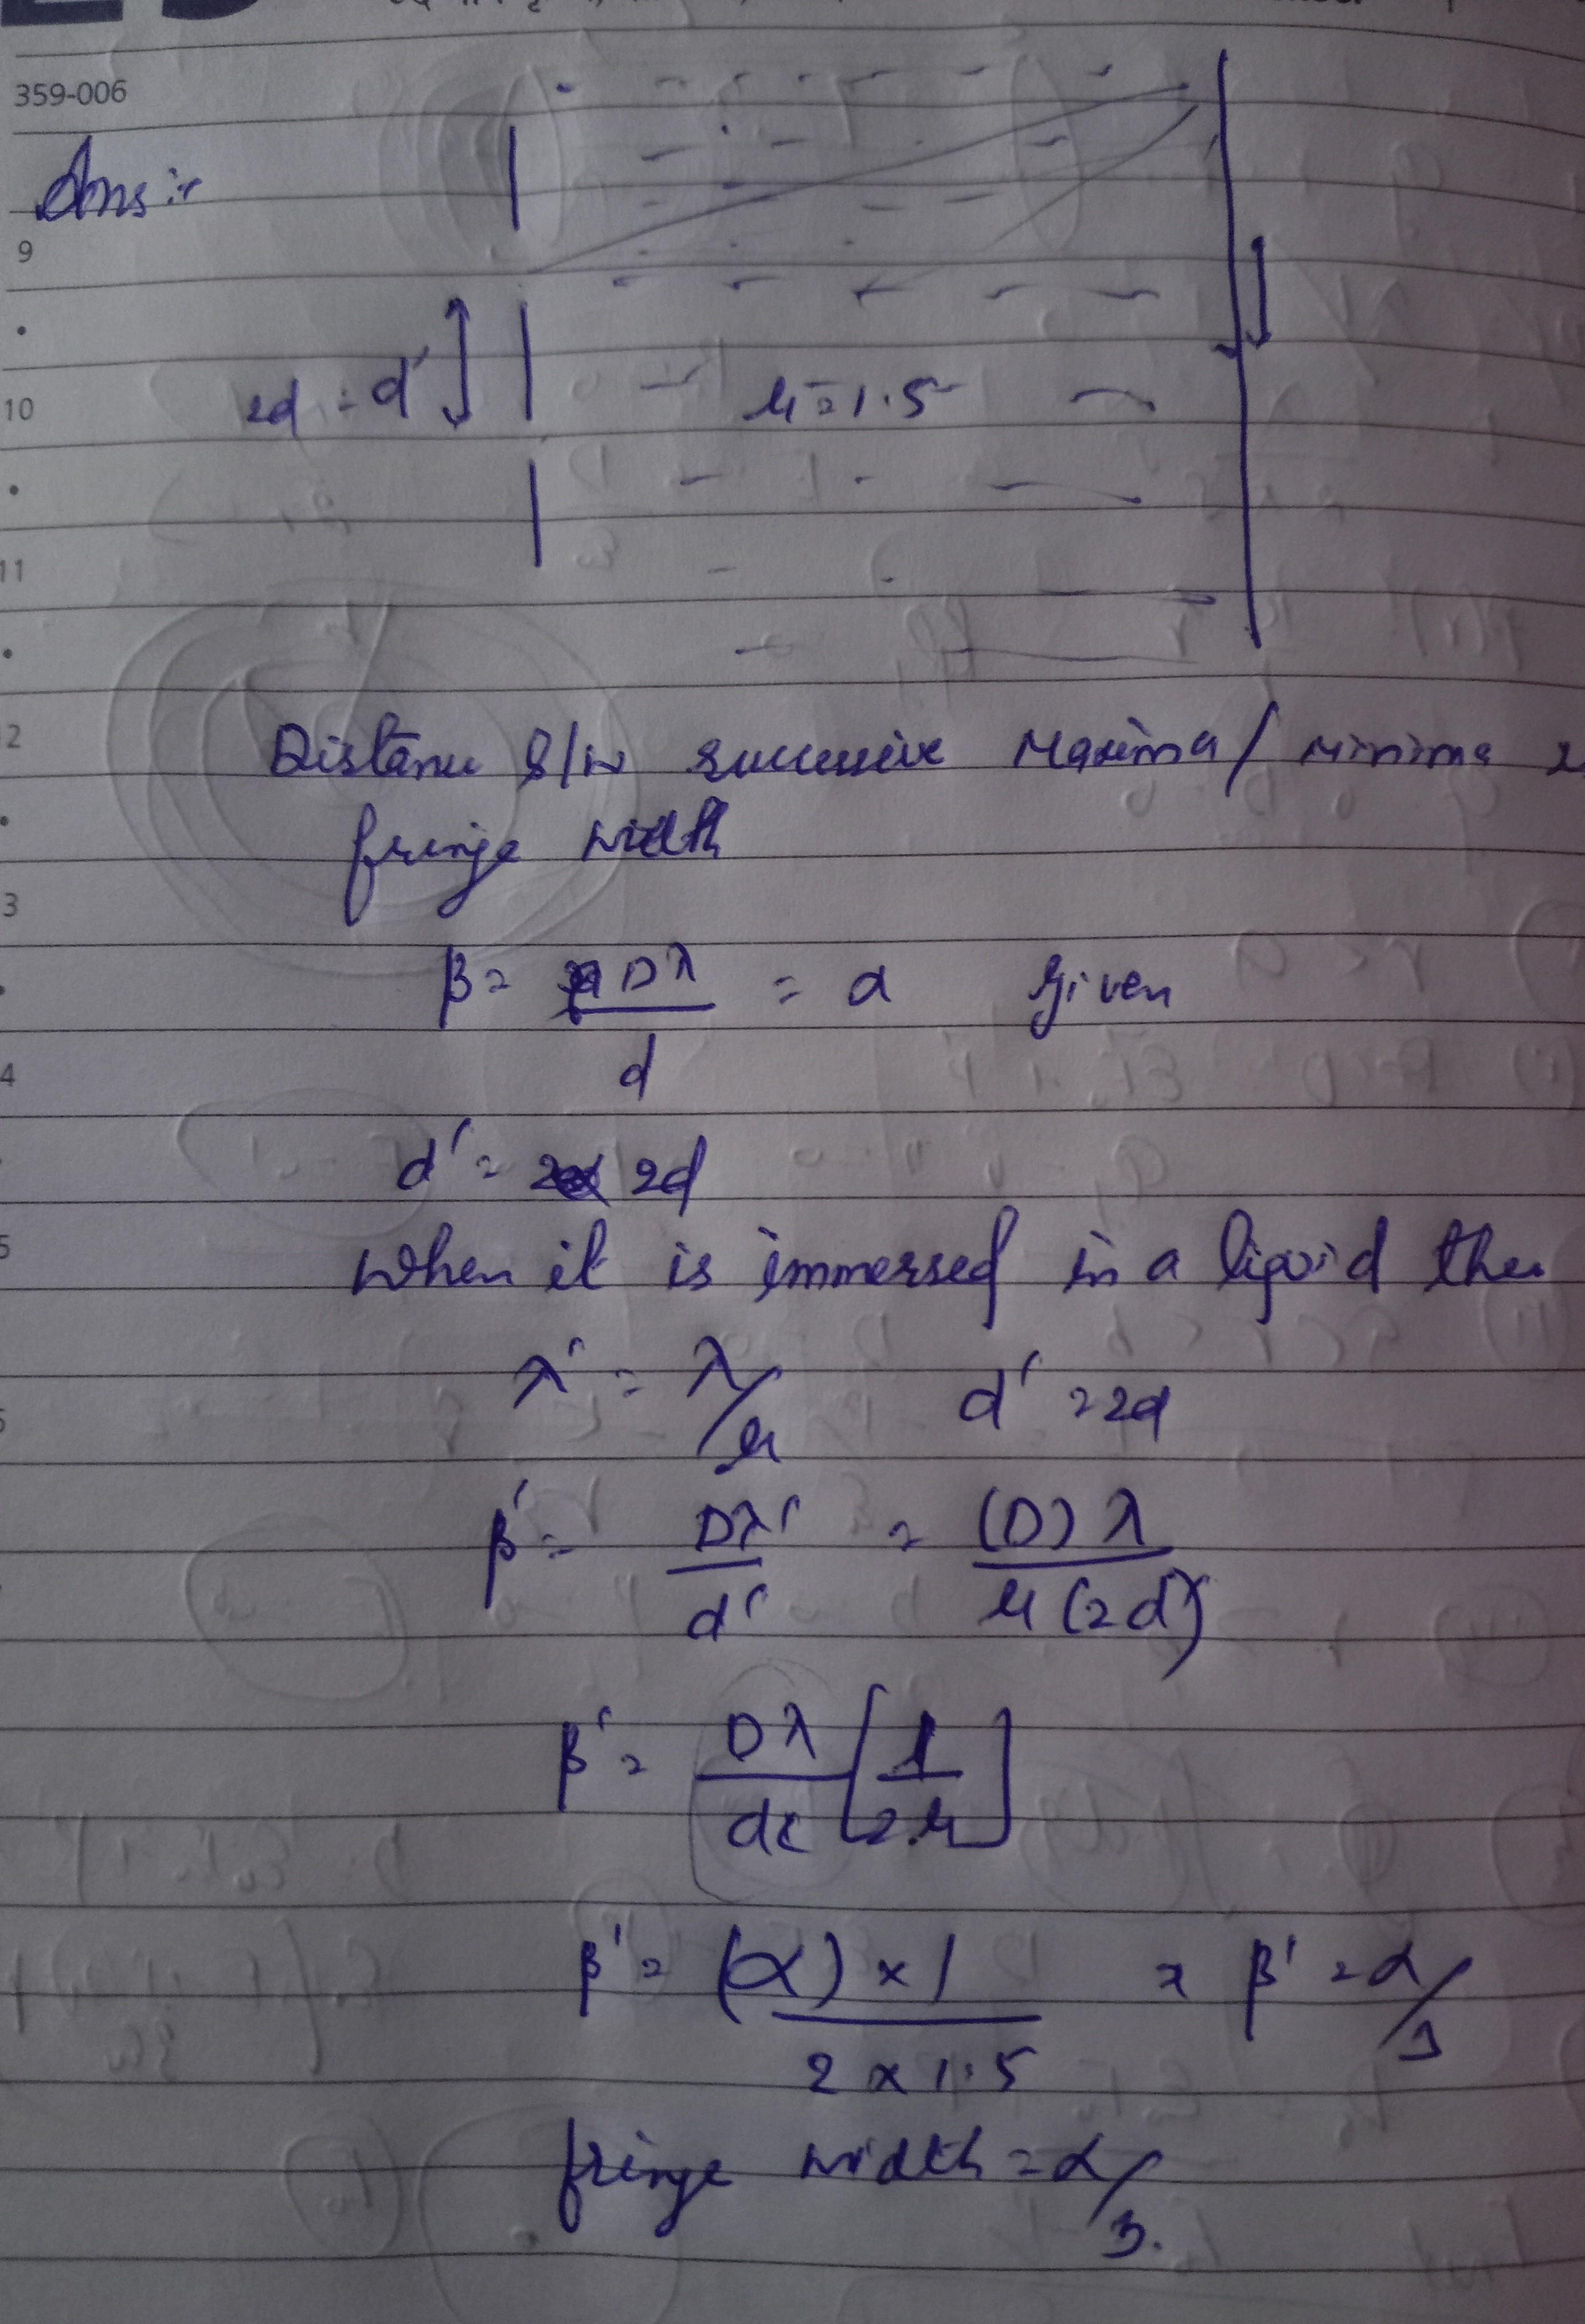 359-006
Ans :-
9
10
2d = d'
μ = 1.5
11
Distance b/w successive Maxima / minima =
fringe width
3
β = Dλ/d = α Given
4
d' = 2d
5
when it is immersed in a liquid then
λ' = λ/μ d' = 2d
β' = Dλ'/d' = (D)λ/μ(2d)
β' = Dλ/d [1/2μ]
β' = (α) × 1/2 × 1.5 = β' = α/3
fringe width = α/3.